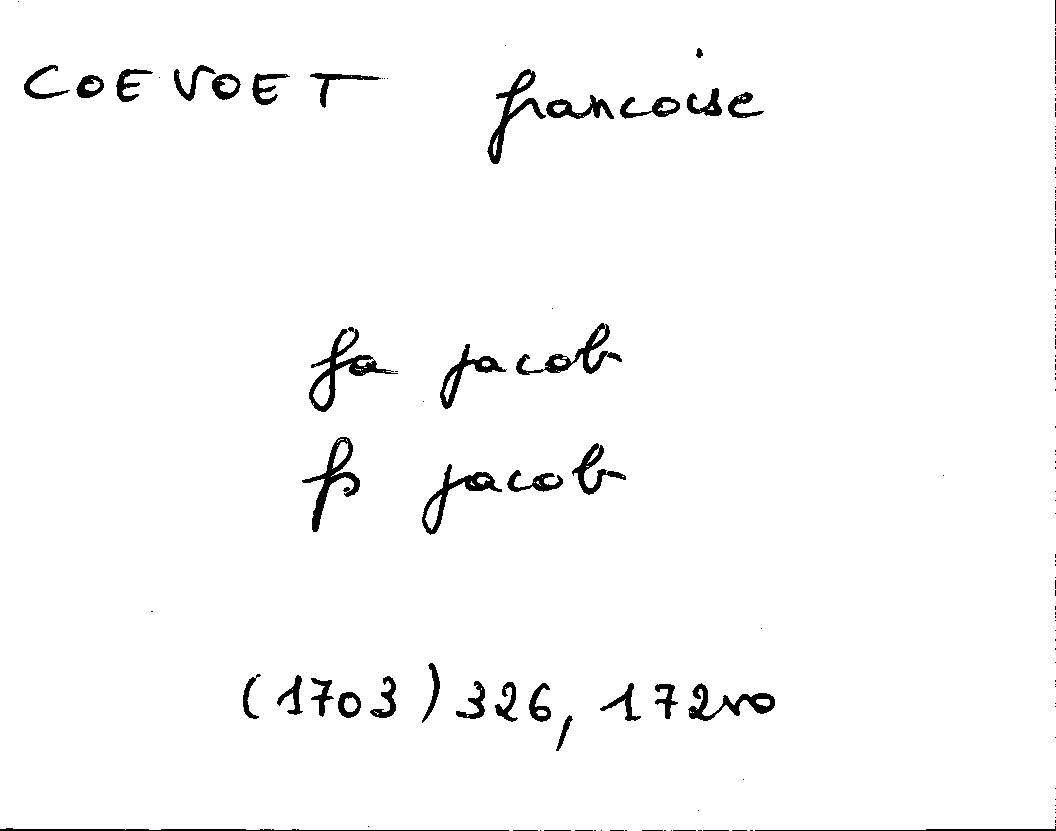 COEVOET francoise
fa jacob
fs jacob
(1703) 326, 172vo